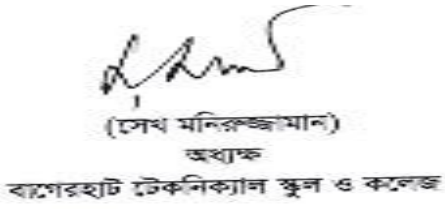 (সেখ মনিরুজ্জামান)
অধ্যক্ষ
বাগেরহাট টেকনিক্যাল স্কুল ও কলেজ